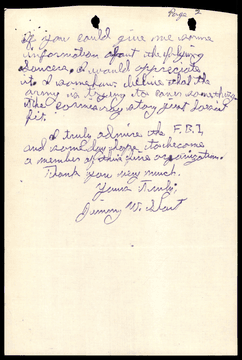 Page 2
if you could give me some
information about the flying
saucers. I would appreciate
it. I somehow believe that the
army is trying to cover something
up
I truly admire the F.B.I.
and someday hope to become
a member of this fine organization.
Thank you very much.
Yours Truly,
Jimmy W.